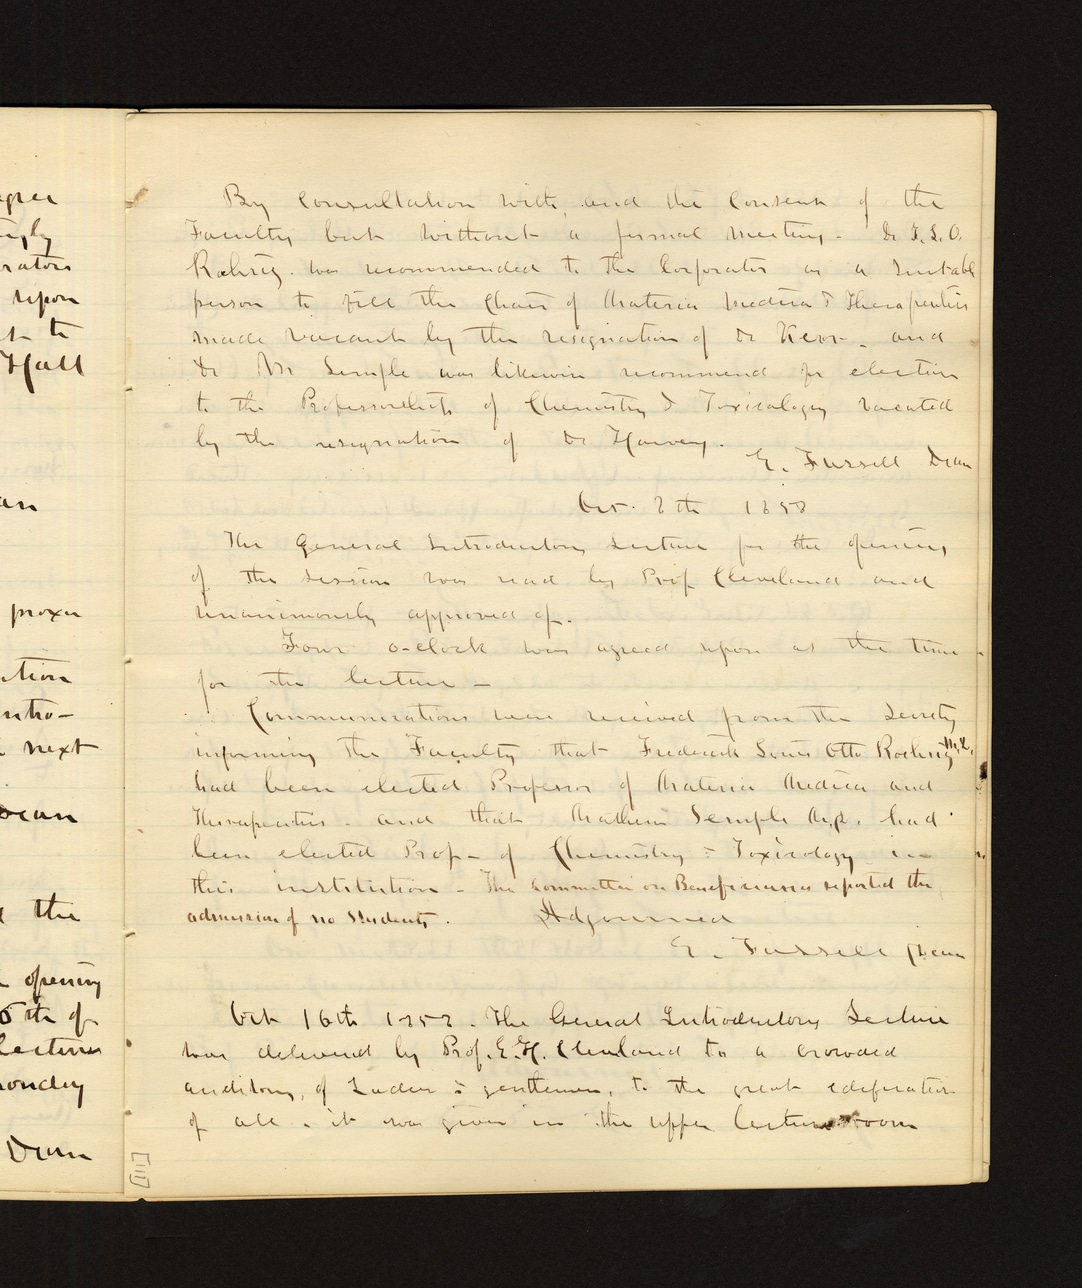 By Consultation with, and the Consent of the
Faculty but without a formal meeting - Dr F. L. O.
Roehrig. was recommended to the Corporators as a Suitable
person to fill the Chair of Materia Medica & Therapeutics
made vacant by the resignation of Dr Kerr - and
Dr M. Semple was likewise recommend for election
to the Professorship of Chemistry & Toxicology vacated
by the resignation of Dr Harvey.
E. Fussell Dean
Oct. 8th 1858
The General Introductory Lecture for the opening
of the session was read by Prof Cleveland and
unanimously approved of.
Four o-clock was agreed upon as the time
for the lecture -
Communications were received from the Secrety
informing the Faculty that Frederick Louis Otto Roehrig M.D.
had been elected Professor of Materia Medica and
Therapeutics - and that Mathew Semple M.D. had
been elected Prof - of Chemistry & Toxicology in
this institution - The Committee on Beneficiaries reported the
admission of no Students. Adjourned
E. Fussell Dean
Oct 16th 1858. The General Introductory Lecture
was delivered by Prof. E. H. Cleveland to a crowded
auditory, of Ladies & gentlemen, to the great edification
of all. it was given in the upper lecture room
[111]
gree
ngly
rators
upon
t to
Hall
an
proxu
ation
ntro-
next
Dean
d the
opening
5th of
Lectures
onday
Dean